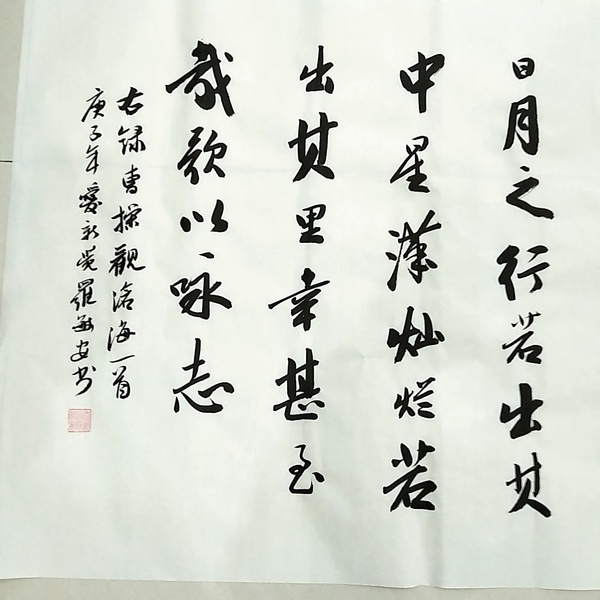 日月之行若出其
中星漢灿烂若
出其里幸甚至
哉歌以咏志
右録曹操觀滄海一首
庚子年愛新覺羅敏安书